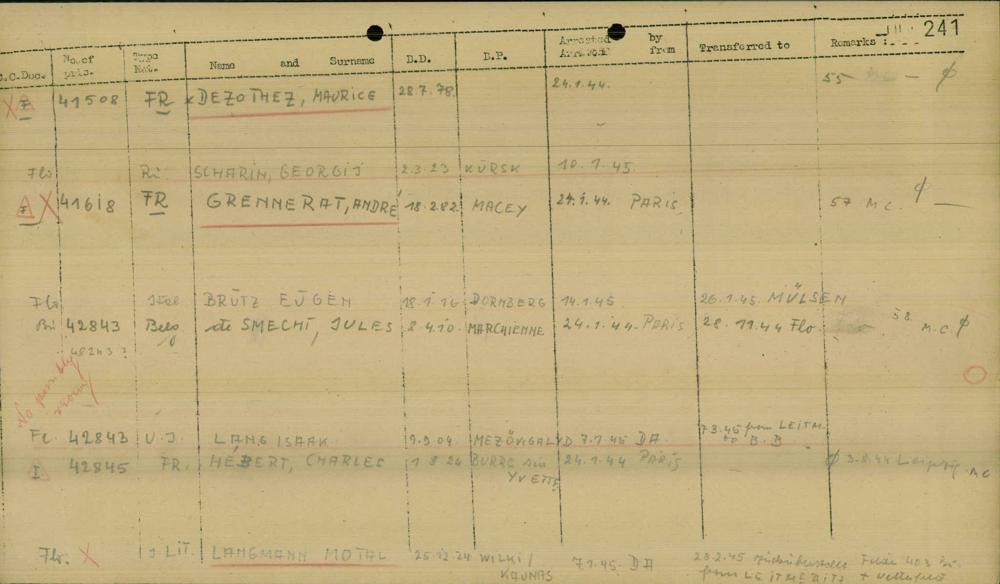 241
C.C.Doc. No.of pris. Type Nat. Name and Surname D.D. B.P. Arrested Arrived by from Transferred to Remarks :
F 41508 FR x DEZOTHEZ, MAURICE 28.7.78 24.1.44. 55 — ϕ
Flo Ru SCHARIN, GEORGIJ 2.3.23 KURSK 10.1.45.
F 41618 FR GRENNERAT, ANDRÉ 18.2.82 MACEY 24.1.44. PARIS, 57 M.C. ϕ —
Flo BRÜTZ EUGEN 18.1.16 DORNBERG 14.1.45 26.1.45. MÜLSEN
Bu 42843 Belg de SMECHT, JULES 8.4.10. MARCHIENNE 24.1.44. PARIS 28.11.44 Flo. 58 M.C. ϕ
No possibly
42843 U.J. LANG ISAAK 9.9.04 7.1.45 DA 7.3.45 from LEITM. to B.B
I 42845 FR. HEBERT, CHARLES 1.8.24 BURRE sur YVETTE 24.1.44 PARIS ϕ 3.8.44 Leipzig. M C
Flo. X J. LIT. LANGMANN MOTAL 25.12.24 WILKI/ KAUNAS 7.1.45. DA 28.2.45
from LEITMERITZ